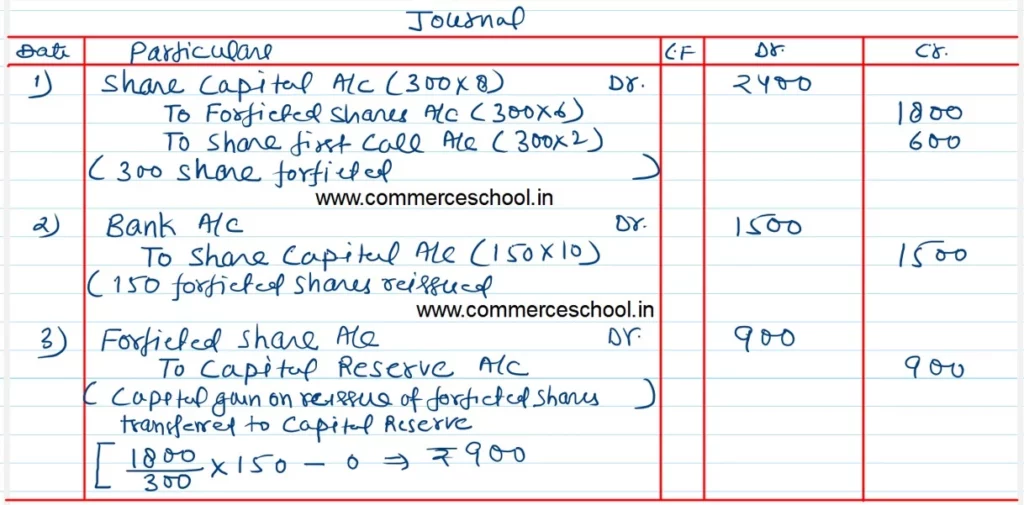 Journal
Date Particulars C.F Dr. Cr.
1) Share Capital A/c (300×8) Dr. 2400
To Forficted Shares A/c (300×6) 1800
To Share first Call A/c (300×2) 600
( 300 share forficted )
www.commerceschool.in
2) Bank A/C Dr. 1500
To Share Capital A/c (150×10) 1500
( 150 forficted shares reissued
www.commerceschool.in
3) Forficted Share A/c Dr. 900
To Capital Reserve A/C 900
( Capital gain on reissue of forficted shares )
transferred to Capital Reserve
[ 1800/300 × 150 – 0 ⇒ ₹900